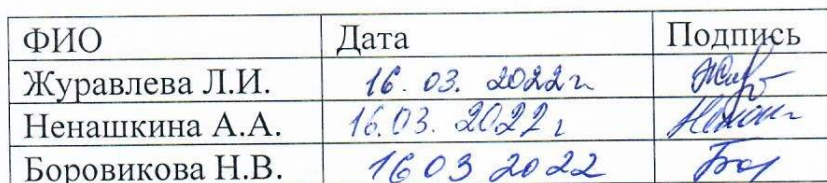 ФИО Дата Подпись
Журавлева Л.И. 16.03.2022г
Ненашкина А.А. 16.03.2022г
Боровикова Н.В. 16 03 2022